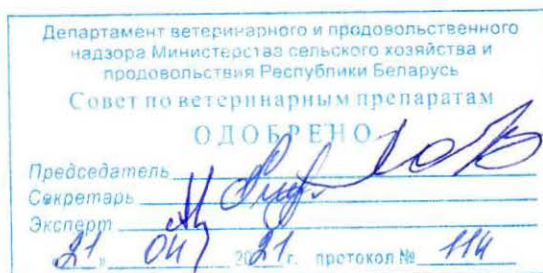 Департамент ветеринарного и продовольственного
надзора Министерства сельского хозяйства и
продовольствия Республики Беларусь
Совет по ветеринарным препаратам
ОДОБРЕНО
Председатель
Секретарь
Эксперт
«21» 04 2021г. протокол № 114